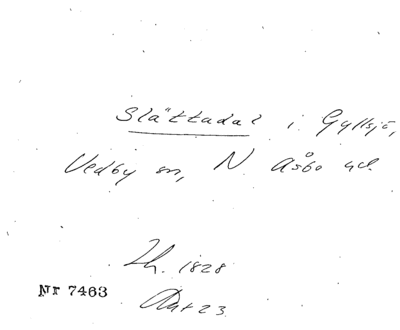 Slättadal i Gyllsjö,
Vedby sn, N. Åsbo hd.
Lh. 1828
Akt 23
Nr 7463